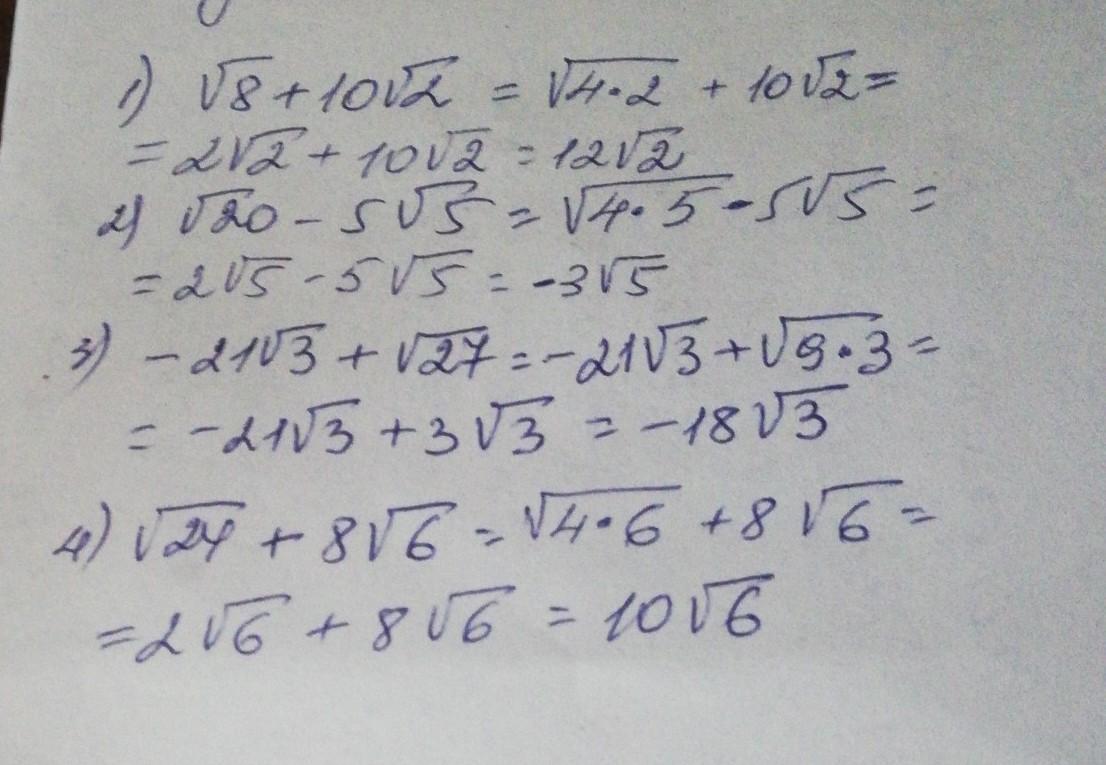 1) √8 + 10√2 = √4·2 + 10√2 =
= 2√2 + 10√2 = 12√2
2) √20 - 5√5 = √4·5 - 5√5 =
= 2√5 - 5√5 = -3√5
3) -21√3 + √27 = -21√3 + √9·3 =
= -21√3 + 3√3 = -18√3
4) √24 + 8√6 = √4·6 + 8√6 =
= 2√6 + 8√6 = 10√6